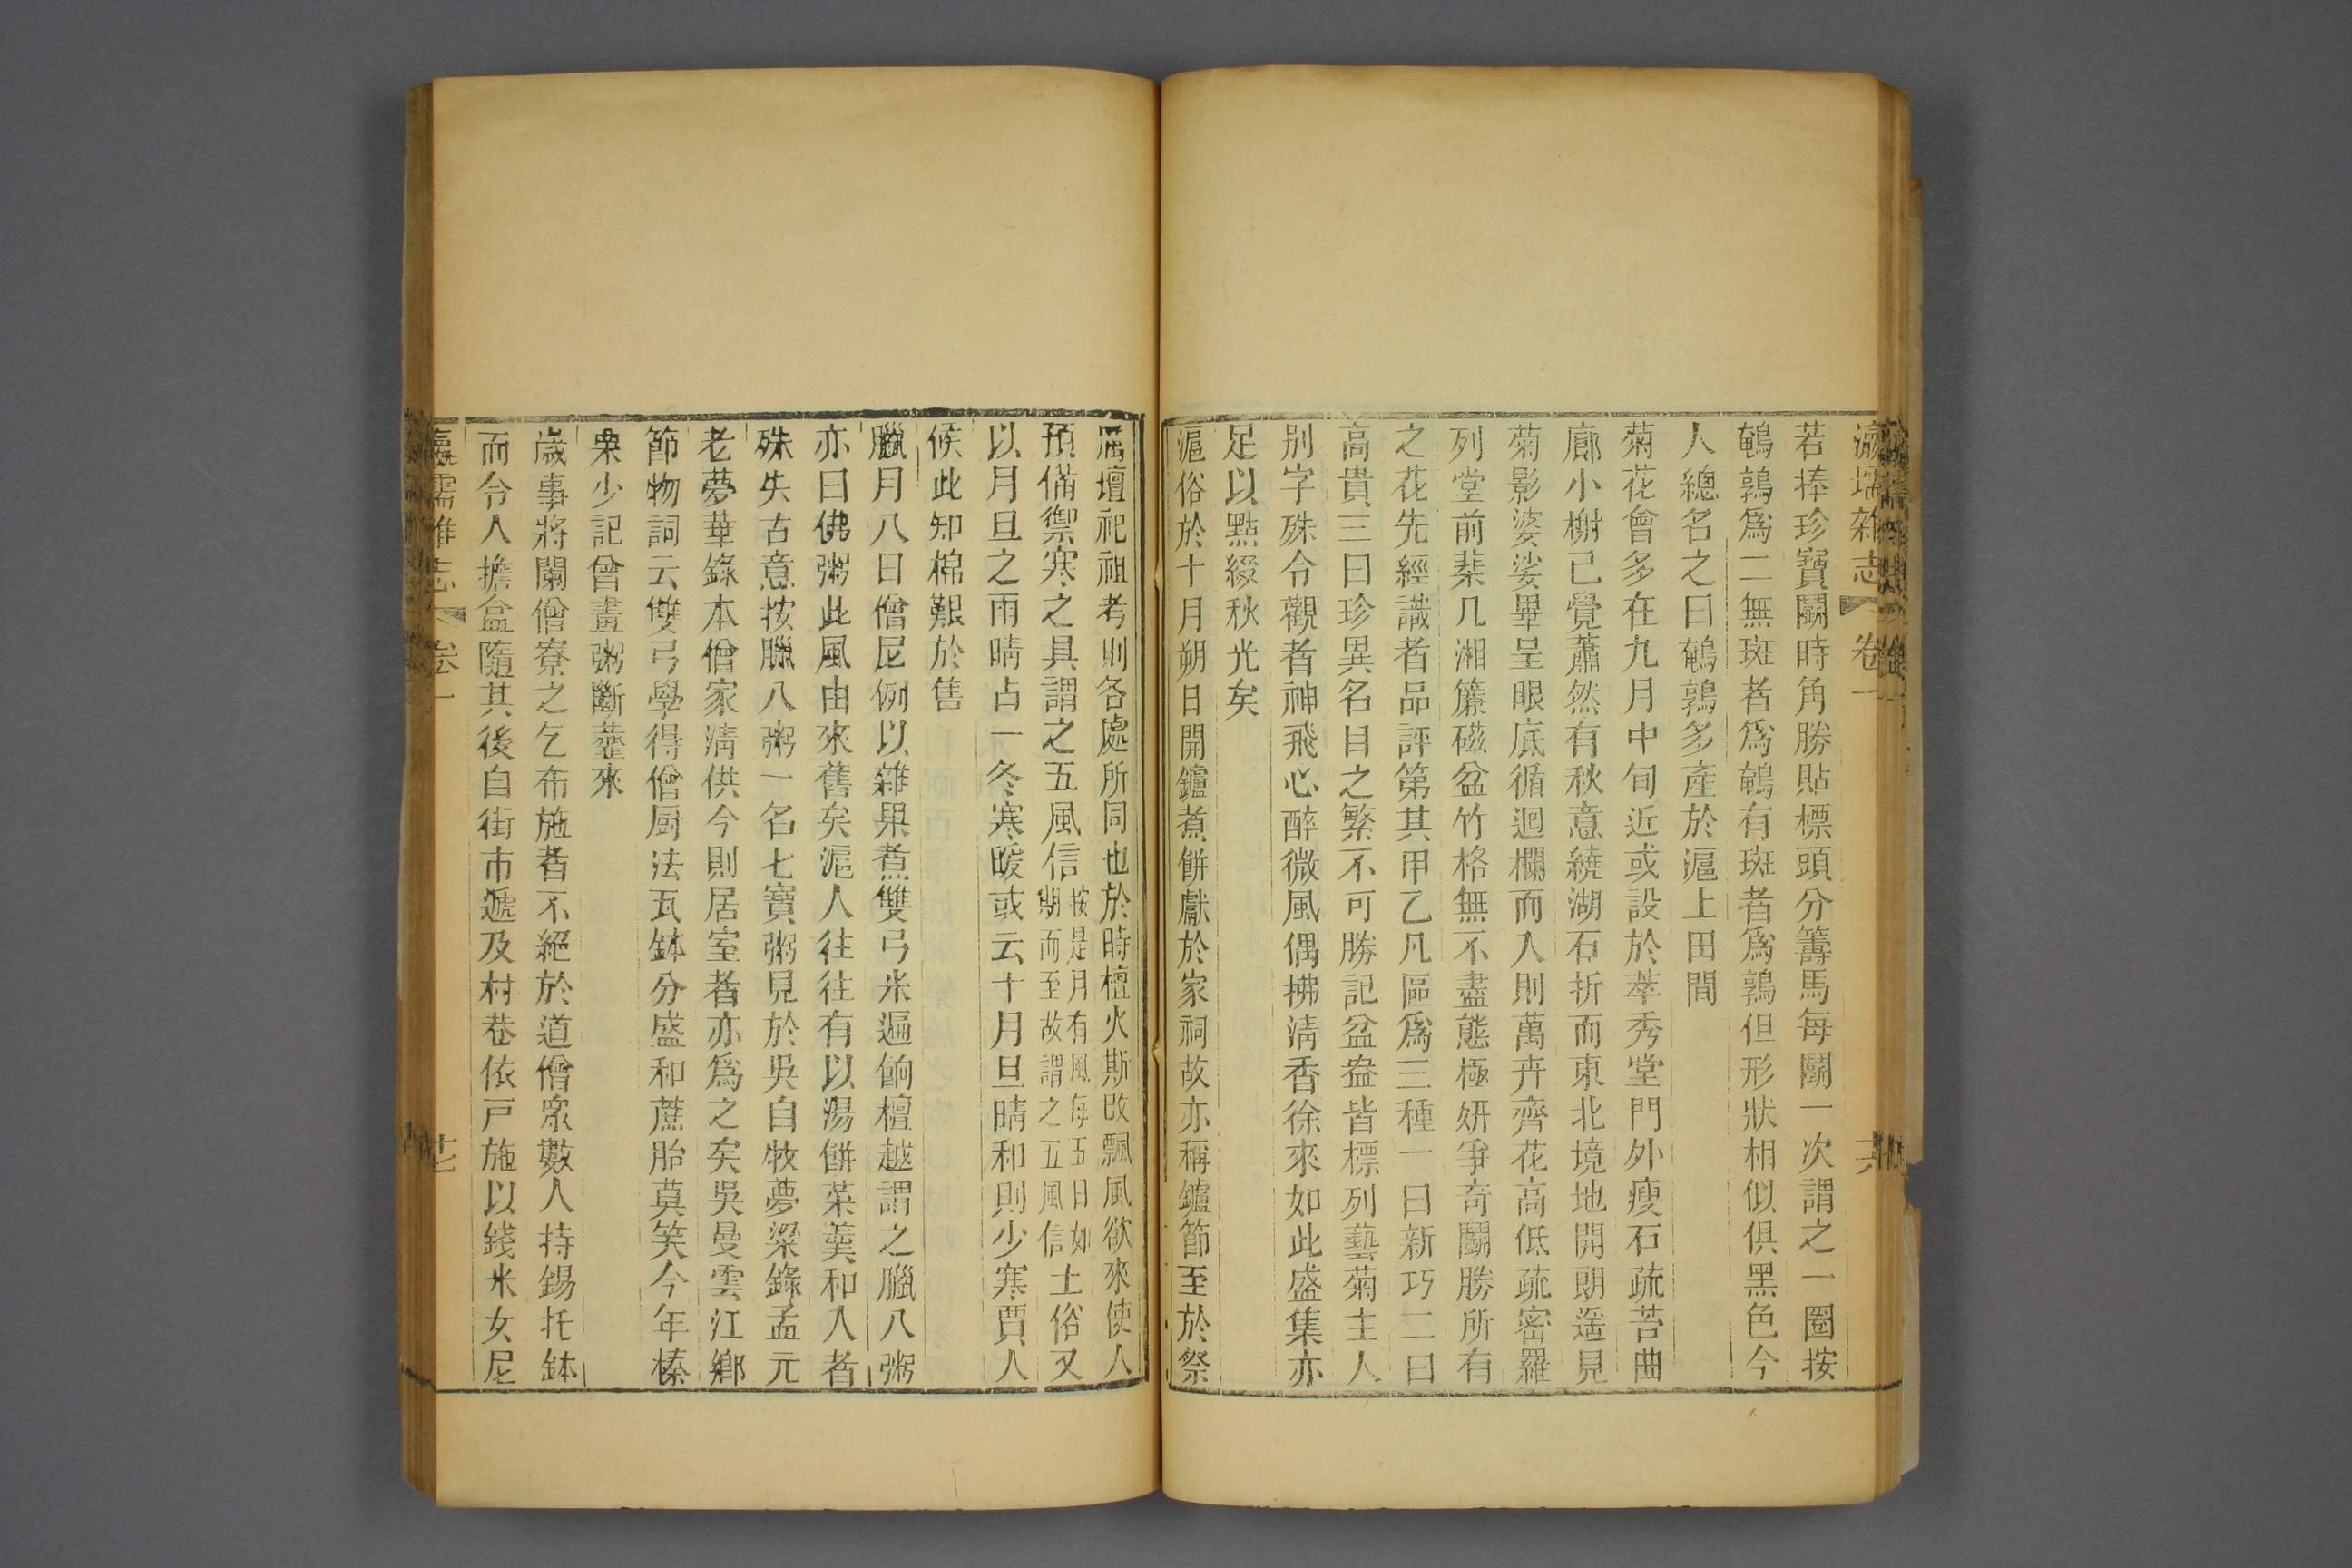 瀛壖雜志 卷一 六
若捧珍寶鬬時角勝貼標頭分籌馬每鬬一次謂之一圈按
鵪鶉爲二無斑者爲鵪有斑者爲鶉但形狀相似俱黑色今
人總名之曰鵪鶉多產於滬上田間
菊花會多在九月中旬近或設於萃秀堂門外瘦石疏苔曲
廊小榭已覺蕭然有秋意繞湖石折而東北境地開朗遥見
菊影婆娑畢呈眼底循迴欄而入則萬卉齊花高低疏密羅
列堂前棐几湘簾磁盆竹格無不盡態極妍爭奇鬬勝所有
之花先經識者品評第其甲乙凡區爲三種一曰新巧二曰
高貴三曰珍異名目之繁不可勝記盆盎皆標列藝菊主人
别字殊令觀者神飛心醉微風偶拂淸香徐來如此盛集亦
足以點綴秋光矣
滬俗於十月朔日開鑪煮餅獻於家祠故亦稱鑪節至於祭
厲壇祀祖考則各處所同也於時檀火斯改飄風欲來使人
預備禦寒之具謂之五風信按是月有風每五日如期而至故謂之五風信土俗又
以月旦之雨晴占一冬寒暖或云十月旦晴和則少寒賈人
候此知棉艱於售
臘月八日僧尼例以雜果煮雙弓米遍餉檀越謂之臘八粥
亦曰佛粥此風由來舊矣滬人往往有以湯餅菜羹和入者
殊失古意按臘八粥一名七寶粥見於吳自牧夢粱錄孟元
老夢華錄本僧家淸供今則居室者亦爲之矣吳曼雲江鄉
節物詞云雙弓學得僧厨法瓦鉢分盛和蔗胎莫笑今年榛
栗少記曾畫粥斷虀來
歲事將闌僧寮之乞布施者不絕於道僧衆數人持錫托鉢
而令人擔盆隨其後自街市遞及村巷依戸施以錢米女尼
瀛壖雜志 卷一 七